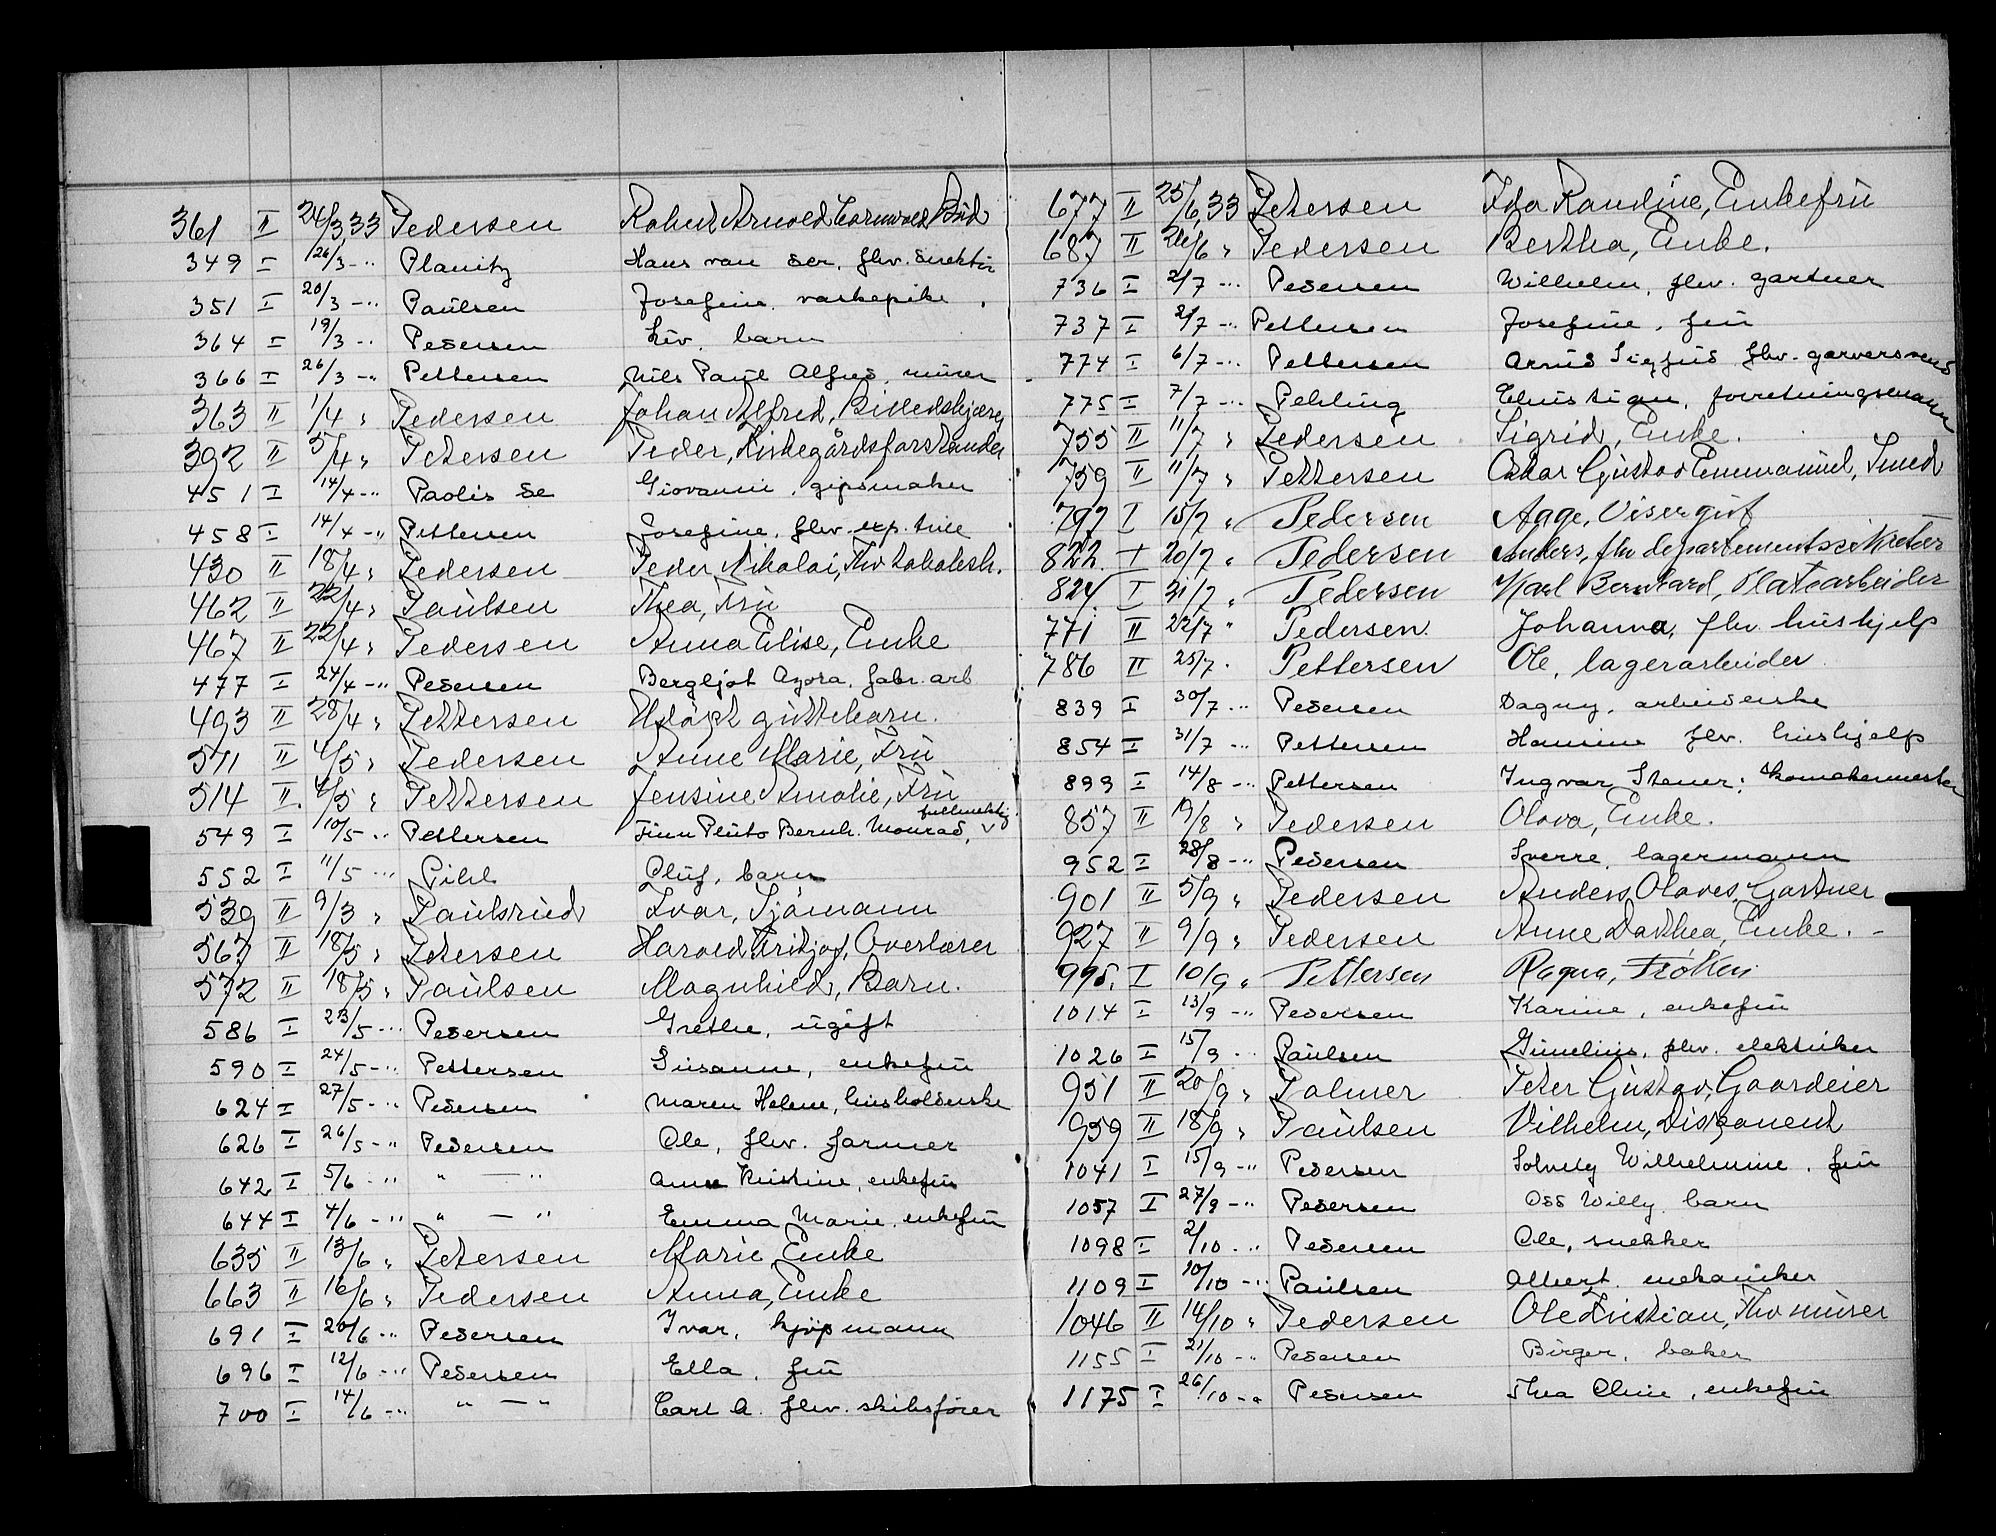 361 II 24/3 33 Pedersen Robert Arnold Cornwald Bud
349 I 26/3 -"- Planitz Hans van der, fhv. direktør
351 I 20/3 -"- Paulsen Josefine, vaskepike
364 I 19/3 -"- Pedersen Liv, barn
366 I 26/3 -"- Pettersen Nils Paul Alfred, murer
363 II 1/4 " Pedersen Johan Alfred, Billedskjærer
392 II 5/4 " Petersen Peder, Kirkegårdsforstander
451 I 14/4 -"- Paolis de Giovanni, gipsmaker
458 I 14/4 -"- Pettersen Josefine, fhv. exp. trise
430 II 18/4 " Pedersen Peder Nikolai, Fhv
462 II 22/4 " Paulsen Thea, Fru
467 II 22/4 " Pedersen Anna Elise, Enke
477 I 24/4 -"- Pedersen Bergljot Agora, fabr. arb
493 II 28/4 " Pettersen Udøpt guttebarn.
511 II 4/5 " Pedersen Anne Marie, Fru
514 II. 4/5 " Pettersen Jensine Amalie, Fru
fullmektig
549 I 10/5 -"- Pettersen Finn Pluto Bernh. Monrad, v
552 I 11/5 -"- Pihl Oluf, barn
539 II 9/3 " Paulsrud Ivar, Sjømann
567 II 18/5 " Petersen Harald Fritjof, Overlærer
572 II 18/5 " Paulsen Magnhild, Barn.
586 I 23/5 -"- Pedersen Grethe, ugift
590 I 24/5 -"- Pettersen Susanne, enkefru
624 I 27/5 -"- Pedersen Maren Helene, husholderske
626 I 26/5 -"- Pedersen Ole, fhv. farmer
642 I 5/6 -"- " — " Anna Kristine, enkefru
644 I 4/6 -"- " — " Emma Marie, enkefru
635 II 13/6 " Petersen Marie, Enke
663 II 16/6 " Pedersen Anna, Enke
691 I 20/6 -"- Pedersen Ivar, kjøpmann
696 I 12/6 -"- Pedersen Ella, fru
700 I 14/6 -"- " — " Carl A. fhv. skibsfører
677 II 25/6 33 Petersen Ida Randine, Enkefru
687 II 26/6 " Pedersen Bertha, Enke.
736 I 2/7 -"- Pedersen Wilhelm, fhv. gartner
737 I 2/7 -"- Pettersen Josefine, fru
774 I 6/7 -"- Pettersen Arnt Sigfus fhv. garversvend
775 I 7/7 -"- Pehling Christian, forretningsmann
755 II 11/7 " Pedersen Sigrid, Enke.
759 II 11/7 " Pettersen Oskar Gustav Emmanuel, Smed
797 I 15/7 " Pedersen Aage, Visergut
822 I 20/7 " Pedersen Anders, fhv departementssekretær
824 I 21/7 " Pedersen Karl Bernhard, Platearbeider
771 II 22/7 " Pedersen. Johanna, fhv. hushjelp
786 II 25/7 . Pettersen Ole, lagerarbeider
839 I 30/7 -"- Pedersen Dagny, arbeiderske
854 I 31/7 -"- Pettersen Hansine fhv. hushjelp
899 I 14/8 -"- Pettersen Ingvar Stener, skomakermester
857 II 19/8 " Pedersen Olava, Enke.
952 I 28/8 -"- Pedersen Sverre, lagermann
901 II 5/9 " Pedersen Anders Olaves, Gartner
927 II 9/9 " Pedersen Anne Dorthea, Enke.
995. I 10/9 " Pettersen Ragna, Frøken
1014 I 13/9 -"- Pedersen Karine, enkefru
1026 I 15/9 -"- Paulsen fhv. elektriker
951 II 20/9 " Palmer Peter Gustav, Gaardeier
959 II 18/9 " Paulsen Vilhelm, Disponent
1041 I 15/9 -"- Pedersen Solveig Wilhelmine, fru
1057 I 27/9 -"- Pedersen Odd Willy, barn
1098 I 2/10 -"- Pedersen Ole, snekker
1109 I 10/10 -"- Paulsen Albert, mekaniker
1046 II 14/10 " Pedersen Ole Kristian, Fhv murer
1155 I 21/10 -"- Pedersen Birger, baker
1175 I 26/10 -"- Pedersen Thea Oline, enkefru